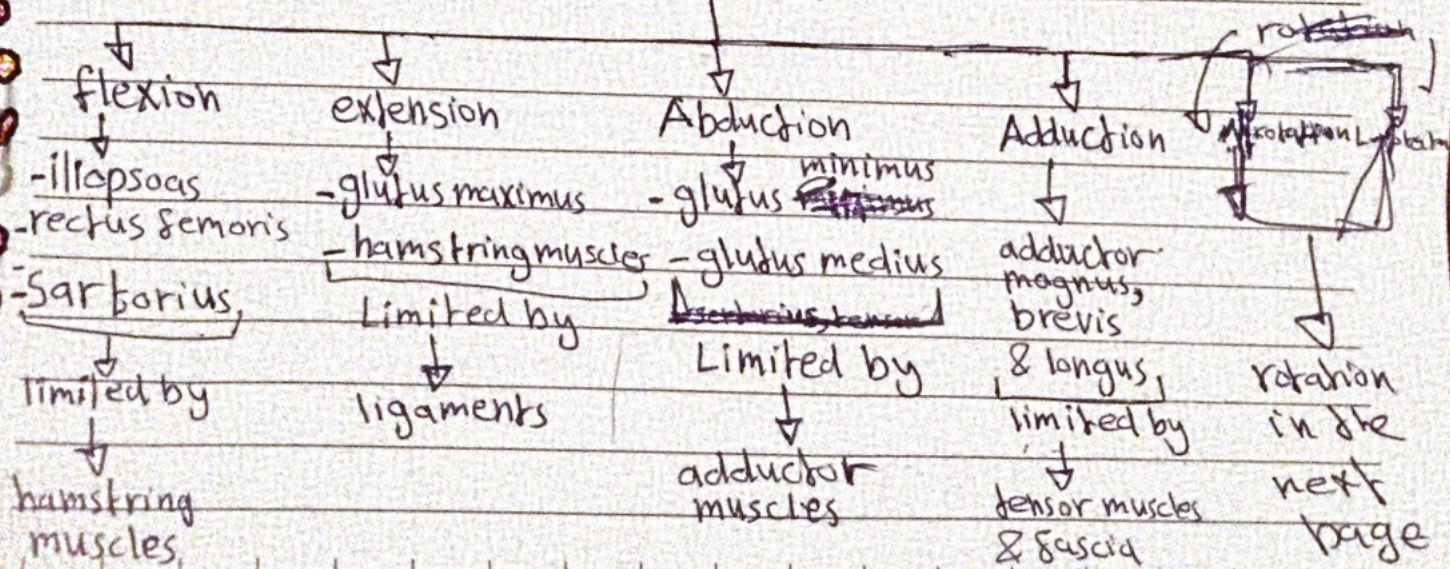 flexion
-iliopsoas
-rectus femoris
-Sartorius
limited by
hamstring
muscles
extension
-glutus maximus
-hamstring muscles
Limited by
ligaments
Abduction
-glutus minimus
-glutus medius
Limited by
adductor
muscles
Adduction
adductor
magnus,
brevis
& longus
limited by
tensor muscles
& fascia
rotation
in the
next
bage